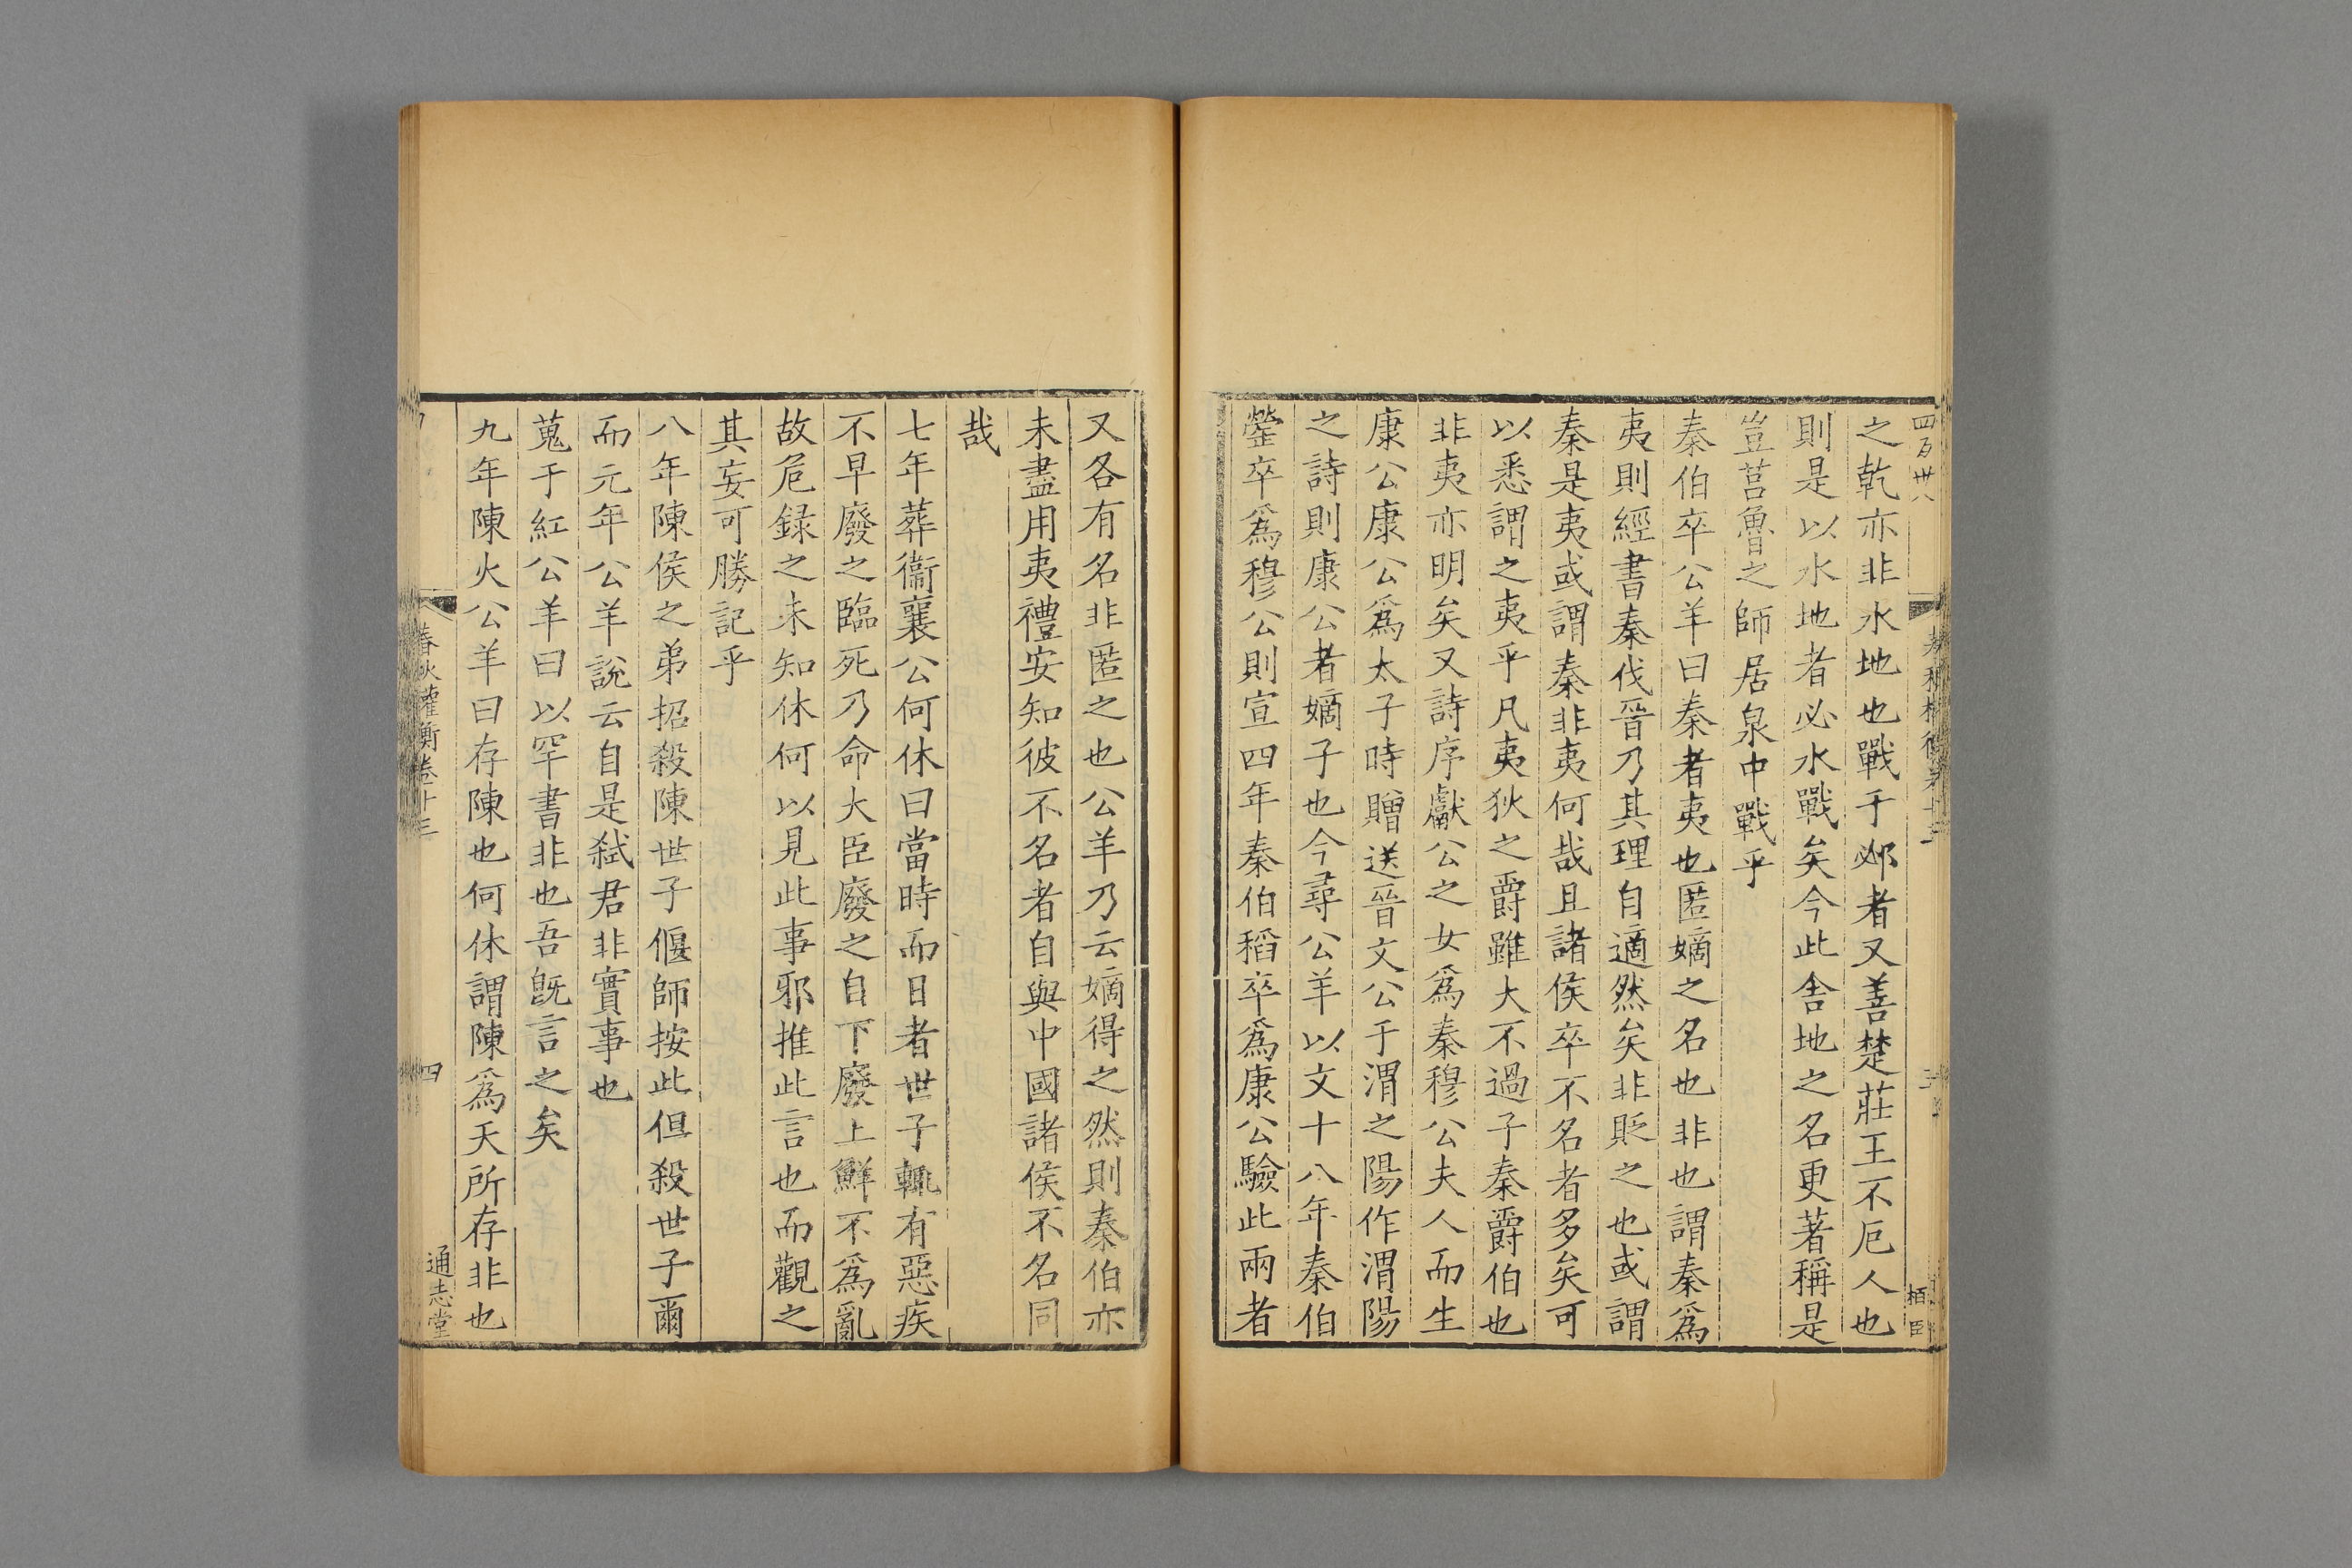 四百卅八
之乾亦非水地也戰于邲者又善楚莊王不厄人也
則是以水地者必水戰矣今此舍地之名更著稱是
豈莒魯之師居泉中戰乎
秦伯卒公羊曰秦者夷也匿嫡之名也非也謂秦爲
夷則經書秦伐晉乃其理自適然矣非貶之也或謂
秦是夷或謂秦非夷何哉且諸侯卒不名者多矣可
以悉謂之夷乎凡夷狄之爵雖大不過子秦爵伯也
非夷亦明矣又詩序獻公之女爲秦穆公夫人而生
康公康公爲太子時贈送晉文公于渭之陽作渭陽
之詩則康公者嫡子也今尋公羊以文十八年秦伯
罃卒爲穆公則宣四年秦伯稻卒爲康公驗此兩者
又各有名非匿之也公羊乃云嫡得之然則秦伯亦
未盡用夷禮安知彼不名者自與中國諸侯不名同
哉
七年葬衞襄公何休曰當時而日者世子輒有惡疾
不早廢之臨死乃命大臣廢之自下廢上鮮不爲亂
故危録之未知休何以見此事邪推此言也而觀之
其妄可勝記乎
八年陳侯之弟招殺陳世子偃師按此但殺世子爾
而元年公羊說云自是弑君非實事也
蒐于紅公羊曰以罕書非也吾旣言之矣
九年陳火公羊曰存陳也何休謂陳爲天所存非也
春秋權衡卷十三
四
通志堂